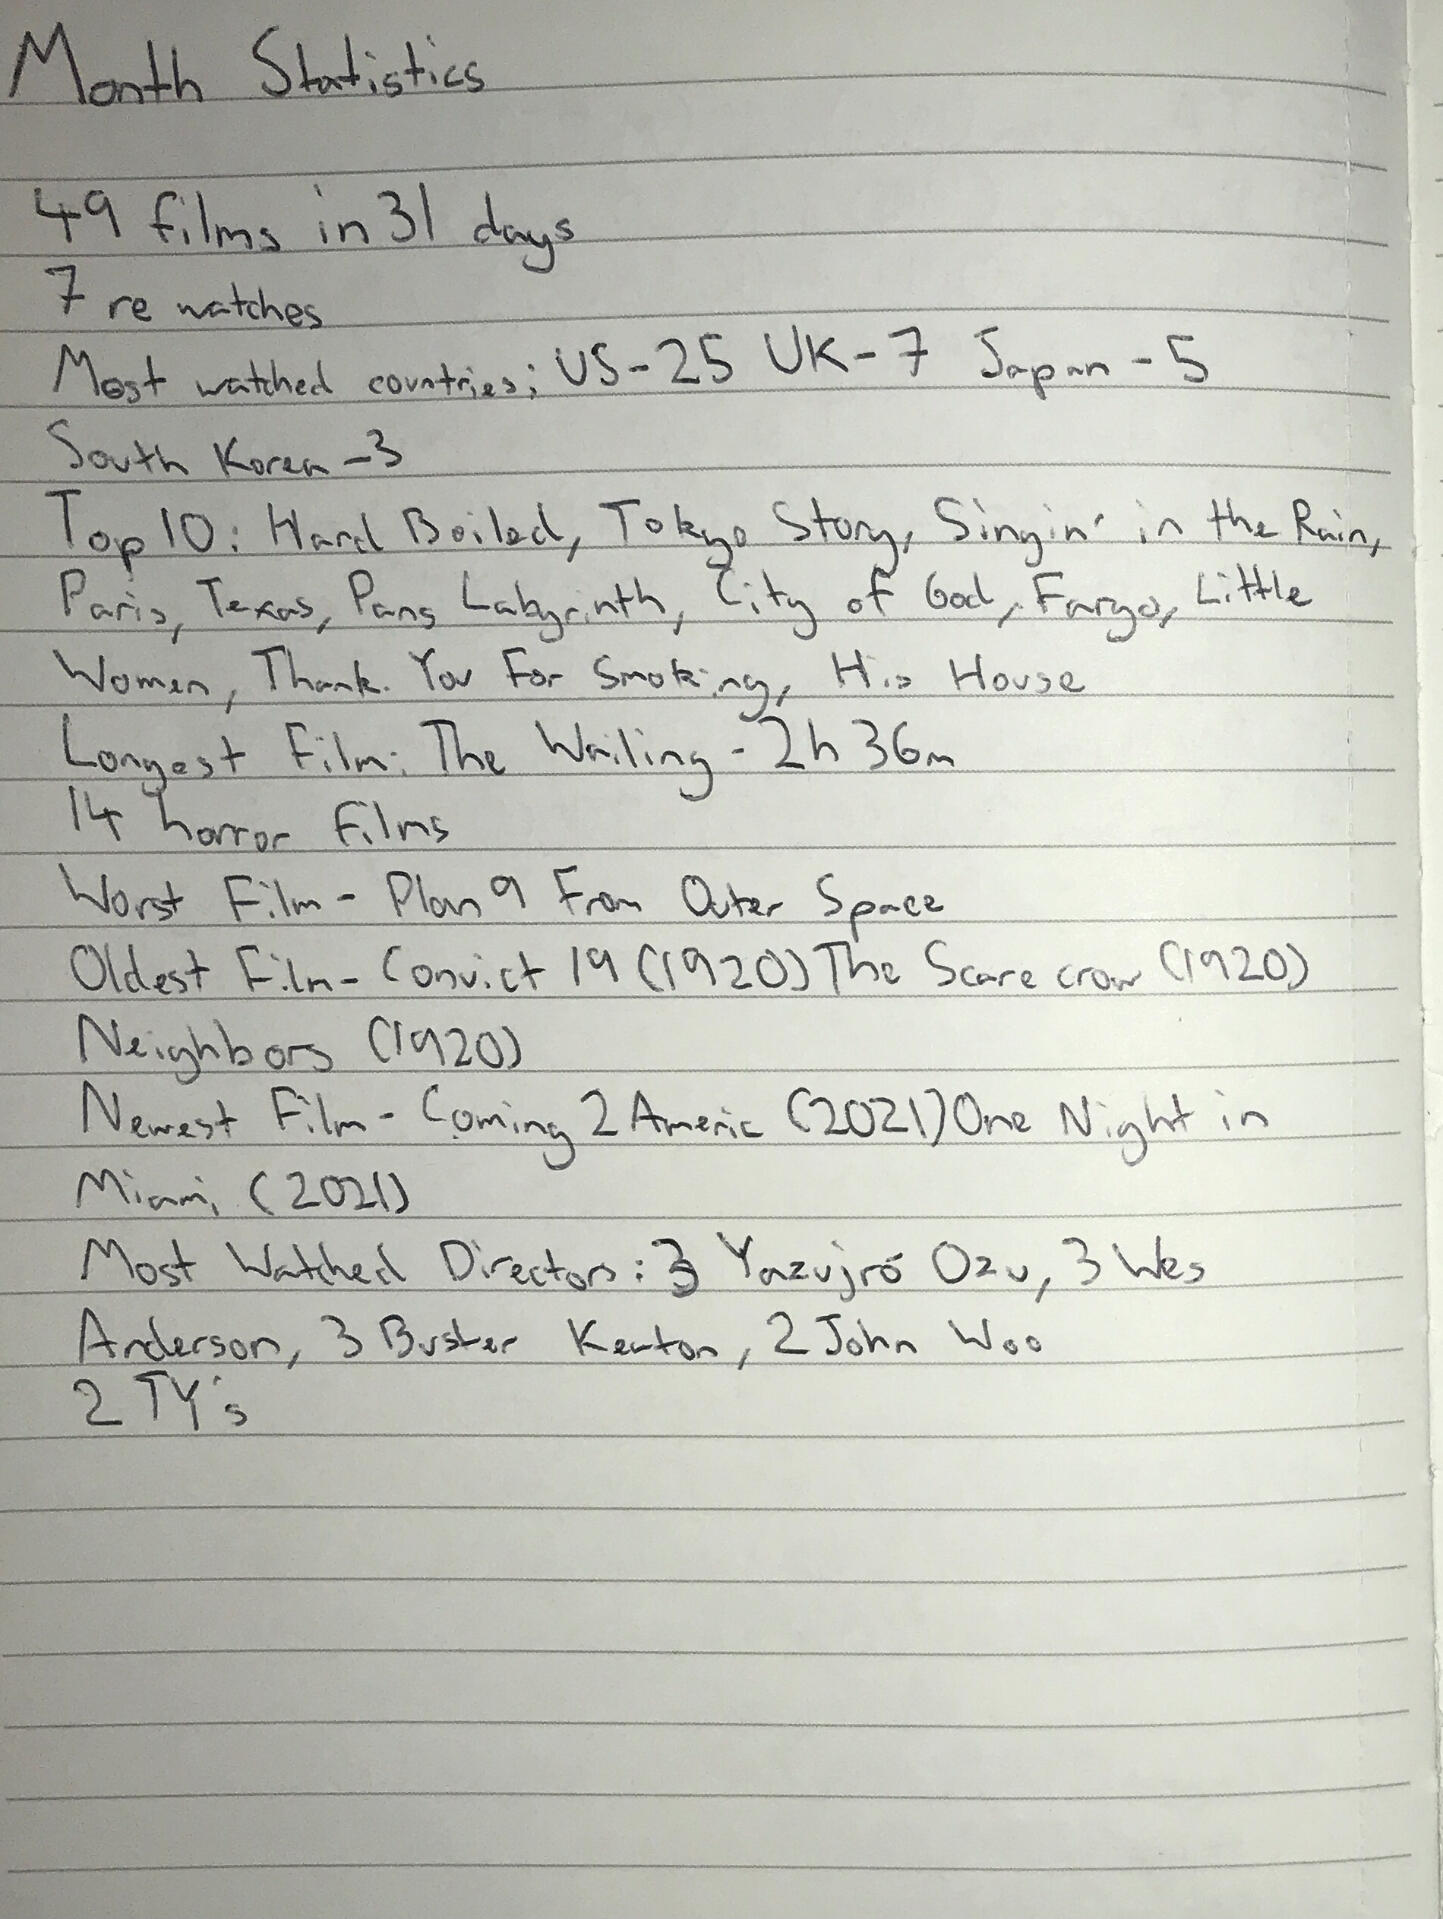 Month Statistics
49 films in 31 days
7 re watches
Most watched countries; US-25 UK-7 Japan-5
South Korea-3
Top 10: Hard Boiled, Tokyo Story, Singin' in the Rain,
Paris, Texas, Pans Labyrinth, City of God, Fargo, Little
Women, Thank You For Smoking, His House
Longest Film: The Wailing - 2h 36m
14 horror films
Worst Film - Plan 9 From Outer Space
Oldest Film - Convict 19 (1920) The Scare crow (1920)
Neighbors (1920)
Newest Film - Coming 2 Americ (2021) One Night in
Miami (2021)
Most Watched Directors: 3 Yazujró Ozu, 3 Wes
Anderson, 3 Buster Keaton, 2 John Woo
2 TY's